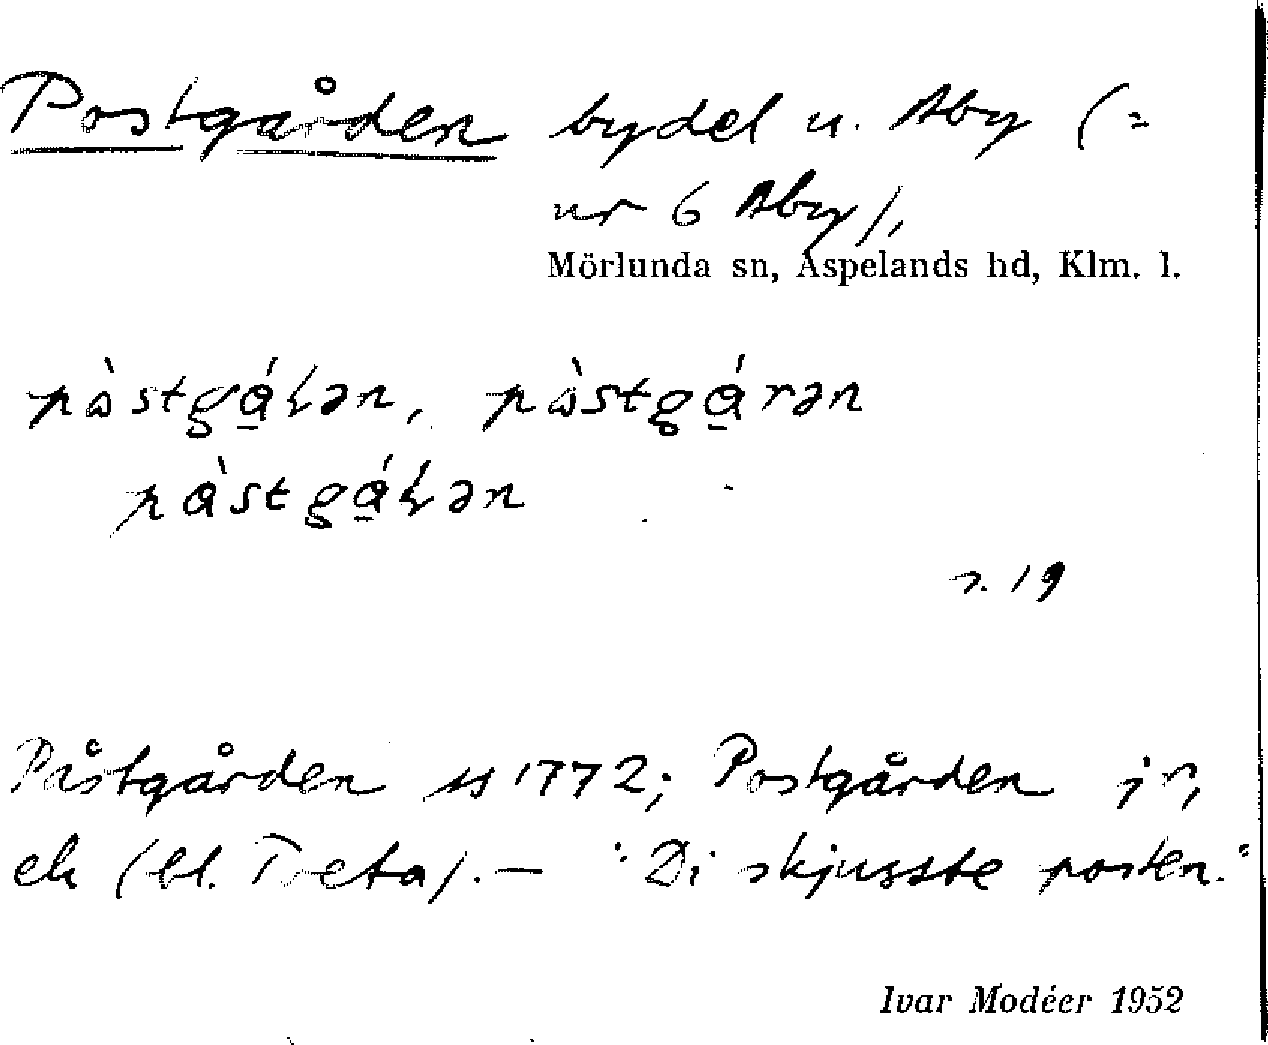 Postgården bydel u. Åby (=
nr 6 Åby),
Mörlunda sn, Aspelands hd, Klm. l.
pòstgá̱ɽən, pòstgá̱rən
pàstgá̱ɽən
s. 19
Påstgården 1772; Postgården jr,
ek (bl. Treta). — "Di skjusste posten."
Ivar Modéer 1952